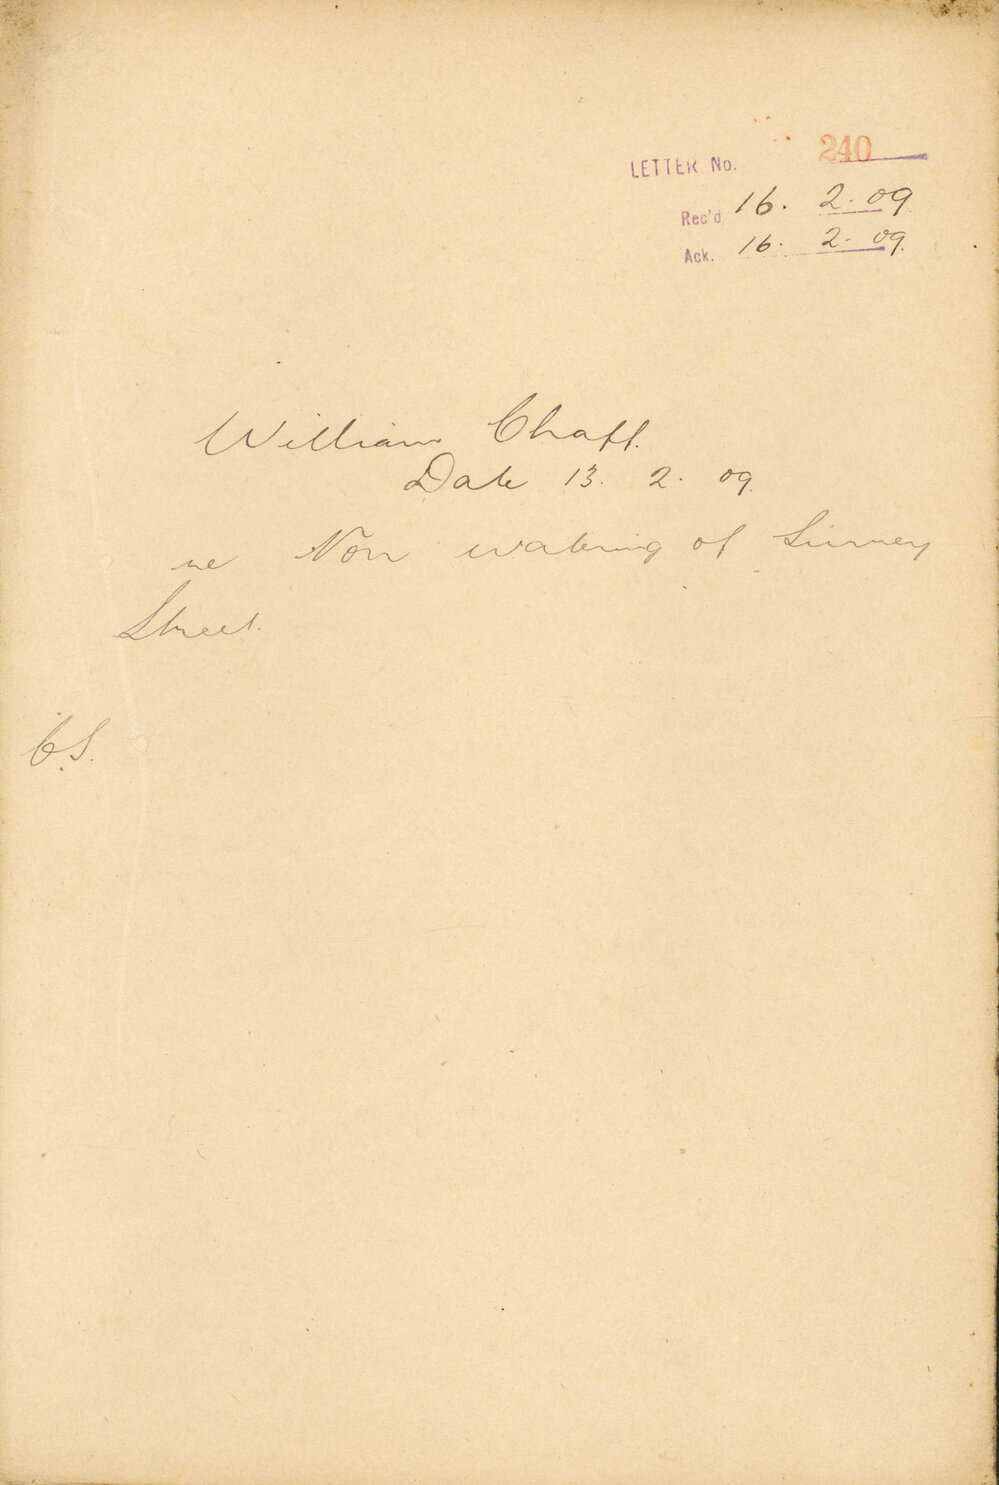 LETTER No. 240
Rec'd 16. 2. 09.
Ack. 16. 2. 09.
William Chaff.
Date 13. 2. 09.
re Non watering of
Street.
C.S.